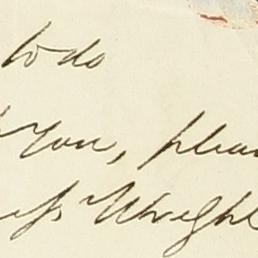 to do
You, pleas
Wright